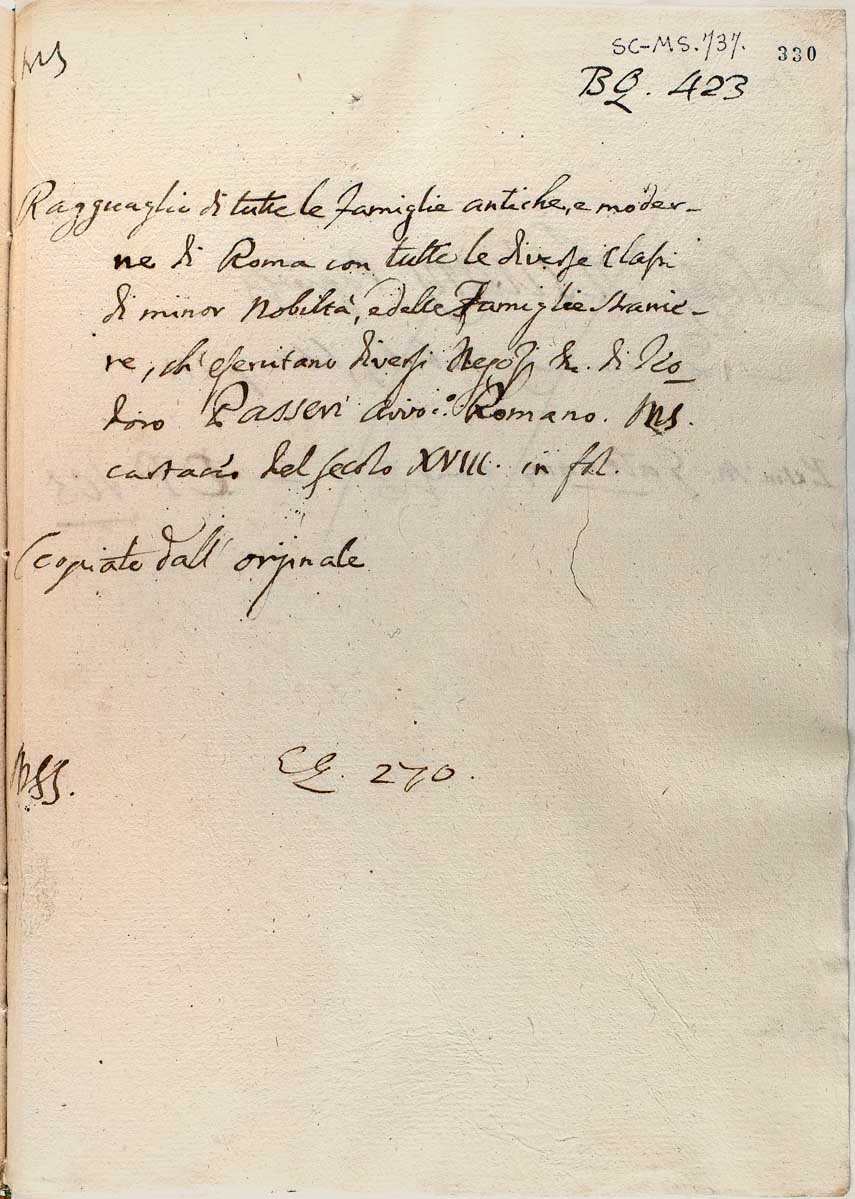 MS
SC-MS.737.
330
BQ. 423
Ragguaglio di tutte le famiglie antiche, e moder-
ne di Roma con tutte le diverse Classi
di minor Nobiltà, e delle Famiglie stranie-
re, ch' esercitano diversi Negozj &c. di Teo-
doro Passeri avvo.° Romano. Ms.
cartaceo del secolo XVIII. in fol.
Copiato dall' orijinale
MSS.
CQ. 270.